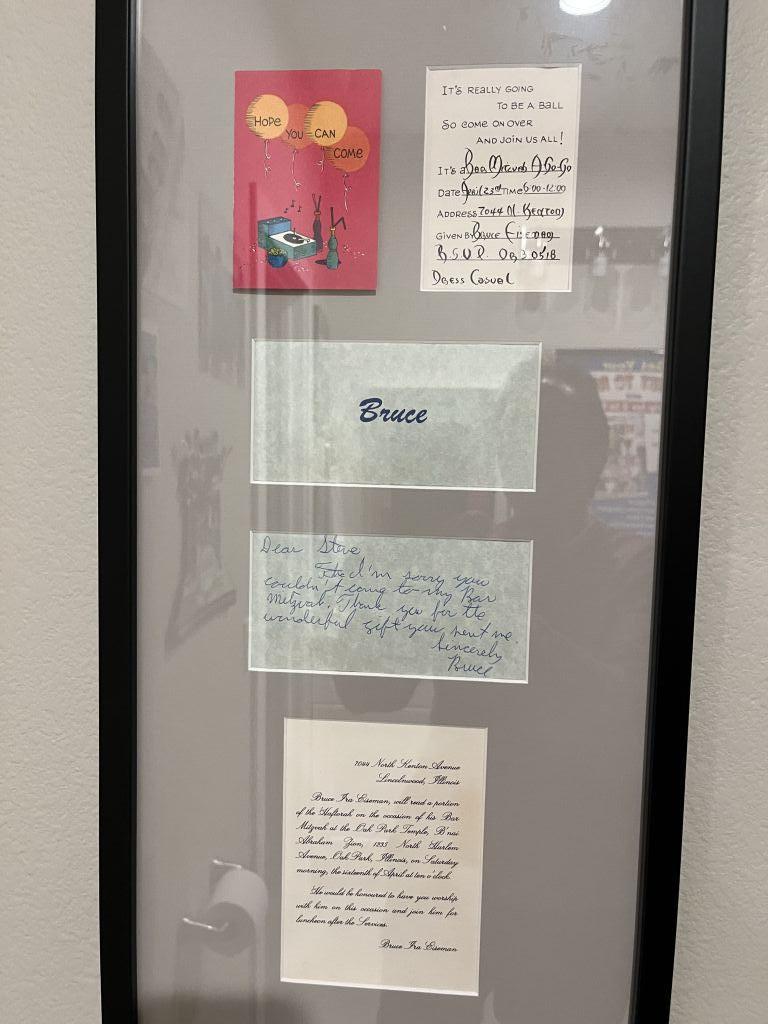 HOPE
YOU CAN
COME
IT'S REALLY GOING
TO BE A BALL
SO COME ON OVER
AND JOIN US ALL!
IT'S A Bar Mitzvah A Go-Go
DATE April 23rd TIME 6:00-12:00
ADDRESS 7044 N. Kenton
GIVEN BY Bruce Eiseman
R.S.V.P. OR 3 0518
Dress Casual
Bruce
Dear Steve
I'm sorry you
couldn't come to my Bar
Mitzvah. Thank you for the
wonderful gift you sent me.
Sincerely
Bruce
7044 North Kenton Avenue
Lincolnwood, Illinois
Bruce Ira Eiseman, will read a portion
of the Haftorah on the occasion of his Bar
Mitzvah at the Oak Park Temple, B'nai
Abraham Zion, 1235 North Harlem
Avenue, Oak Park, Illinois, on Saturday
morning, the sixteenth of April at ten o'clock.
He would be honoured to have you worship
with him on this occasion and join him for
luncheon after the Services.
Bruce Ira Eiseman